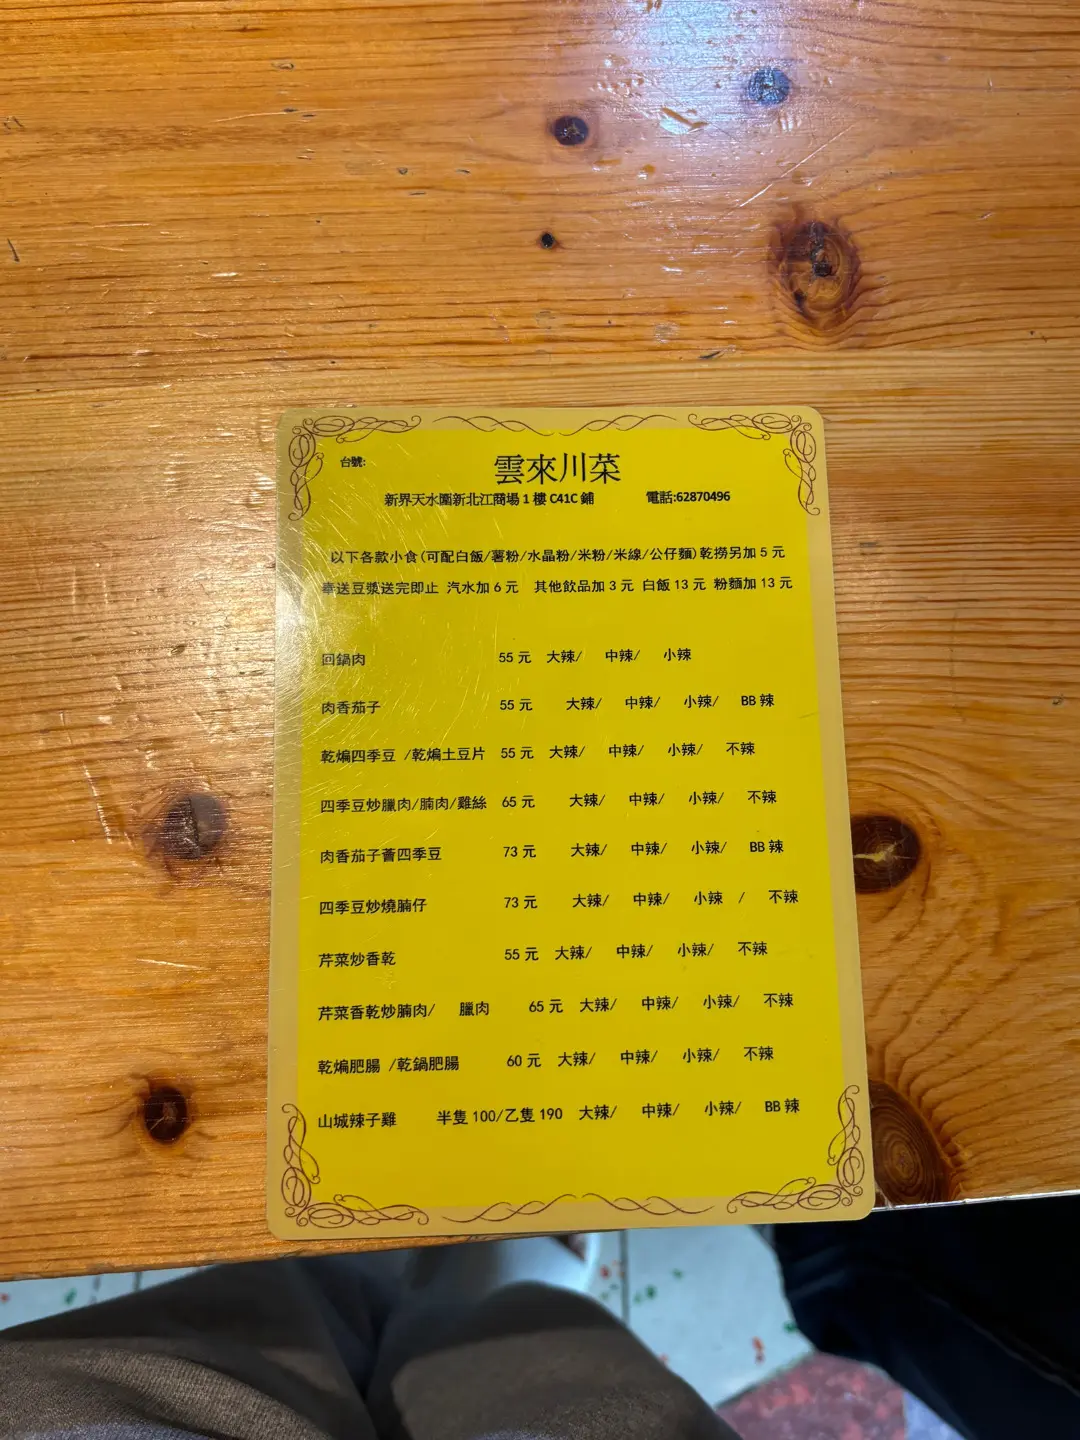 台號:
雲來川菜
新界天水圍新北江商場 1 樓 C41C 鋪 電話:62870496
以下各款小食(可配白飯/薯粉/水晶粉/米粉/米線/公仔麵)乾撈另加 5 元
奉送豆漿送完即止 汽水加 6 元 其他飲品加 3 元 白飯 13 元 粉麵加 13 元
回鍋肉 55 元 大辣/ 中辣/ 小辣
肉香茄子 55 元 大辣/ 中辣/ 小辣/ BB 辣
乾煸四季豆 /乾煸土豆片 55 元 大辣/ 中辣/ 小辣/ 不辣
四季豆炒臘肉/腩肉/雞絲 65 元 大辣/ 中辣/ 小辣/ 不辣
肉香茄子薈四季豆 73 元 大辣/ 中辣/ 小辣/ BB 辣
四季豆炒燒腩仔 73 元 大辣/ 中辣/ 小辣 / 不辣
芹菜炒香乾 55 元 大辣/ 中辣/ 小辣/ 不辣
芹菜香乾炒腩肉/ 臘肉 65 元 大辣/ 中辣/ 小辣/ 不辣
乾煸肥腸 /乾鍋肥腸 60 元 大辣/ 中辣/ 小辣/ 不辣
山城辣子雞 半隻 100/乙隻 190 大辣/ 中辣/ 小辣/ BB 辣